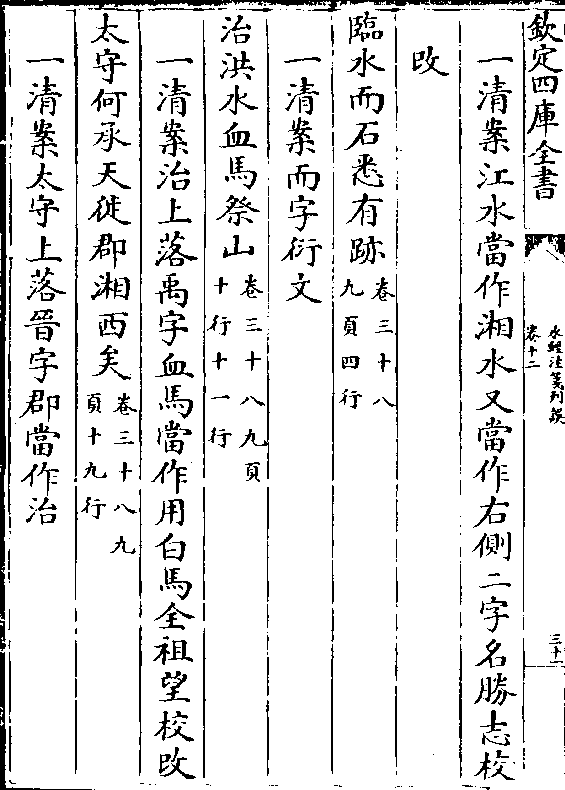 欽定四庫全書
水經注箋刊誤
卷十二
三十一
一清案江水當作湘水又當作右側二字名勝志校
改
臨水而石悉有跡卷三十八
九頁四行
一清案而字衍文
治洪水血馬祭山卷三十八九頁
十行十一行
一清案治上落禹字血馬當作用白馬全祖望校改
太守何承天徙郡湘西矣卷三十八九
頁十九行
一清案太守上落晉字郡當作治